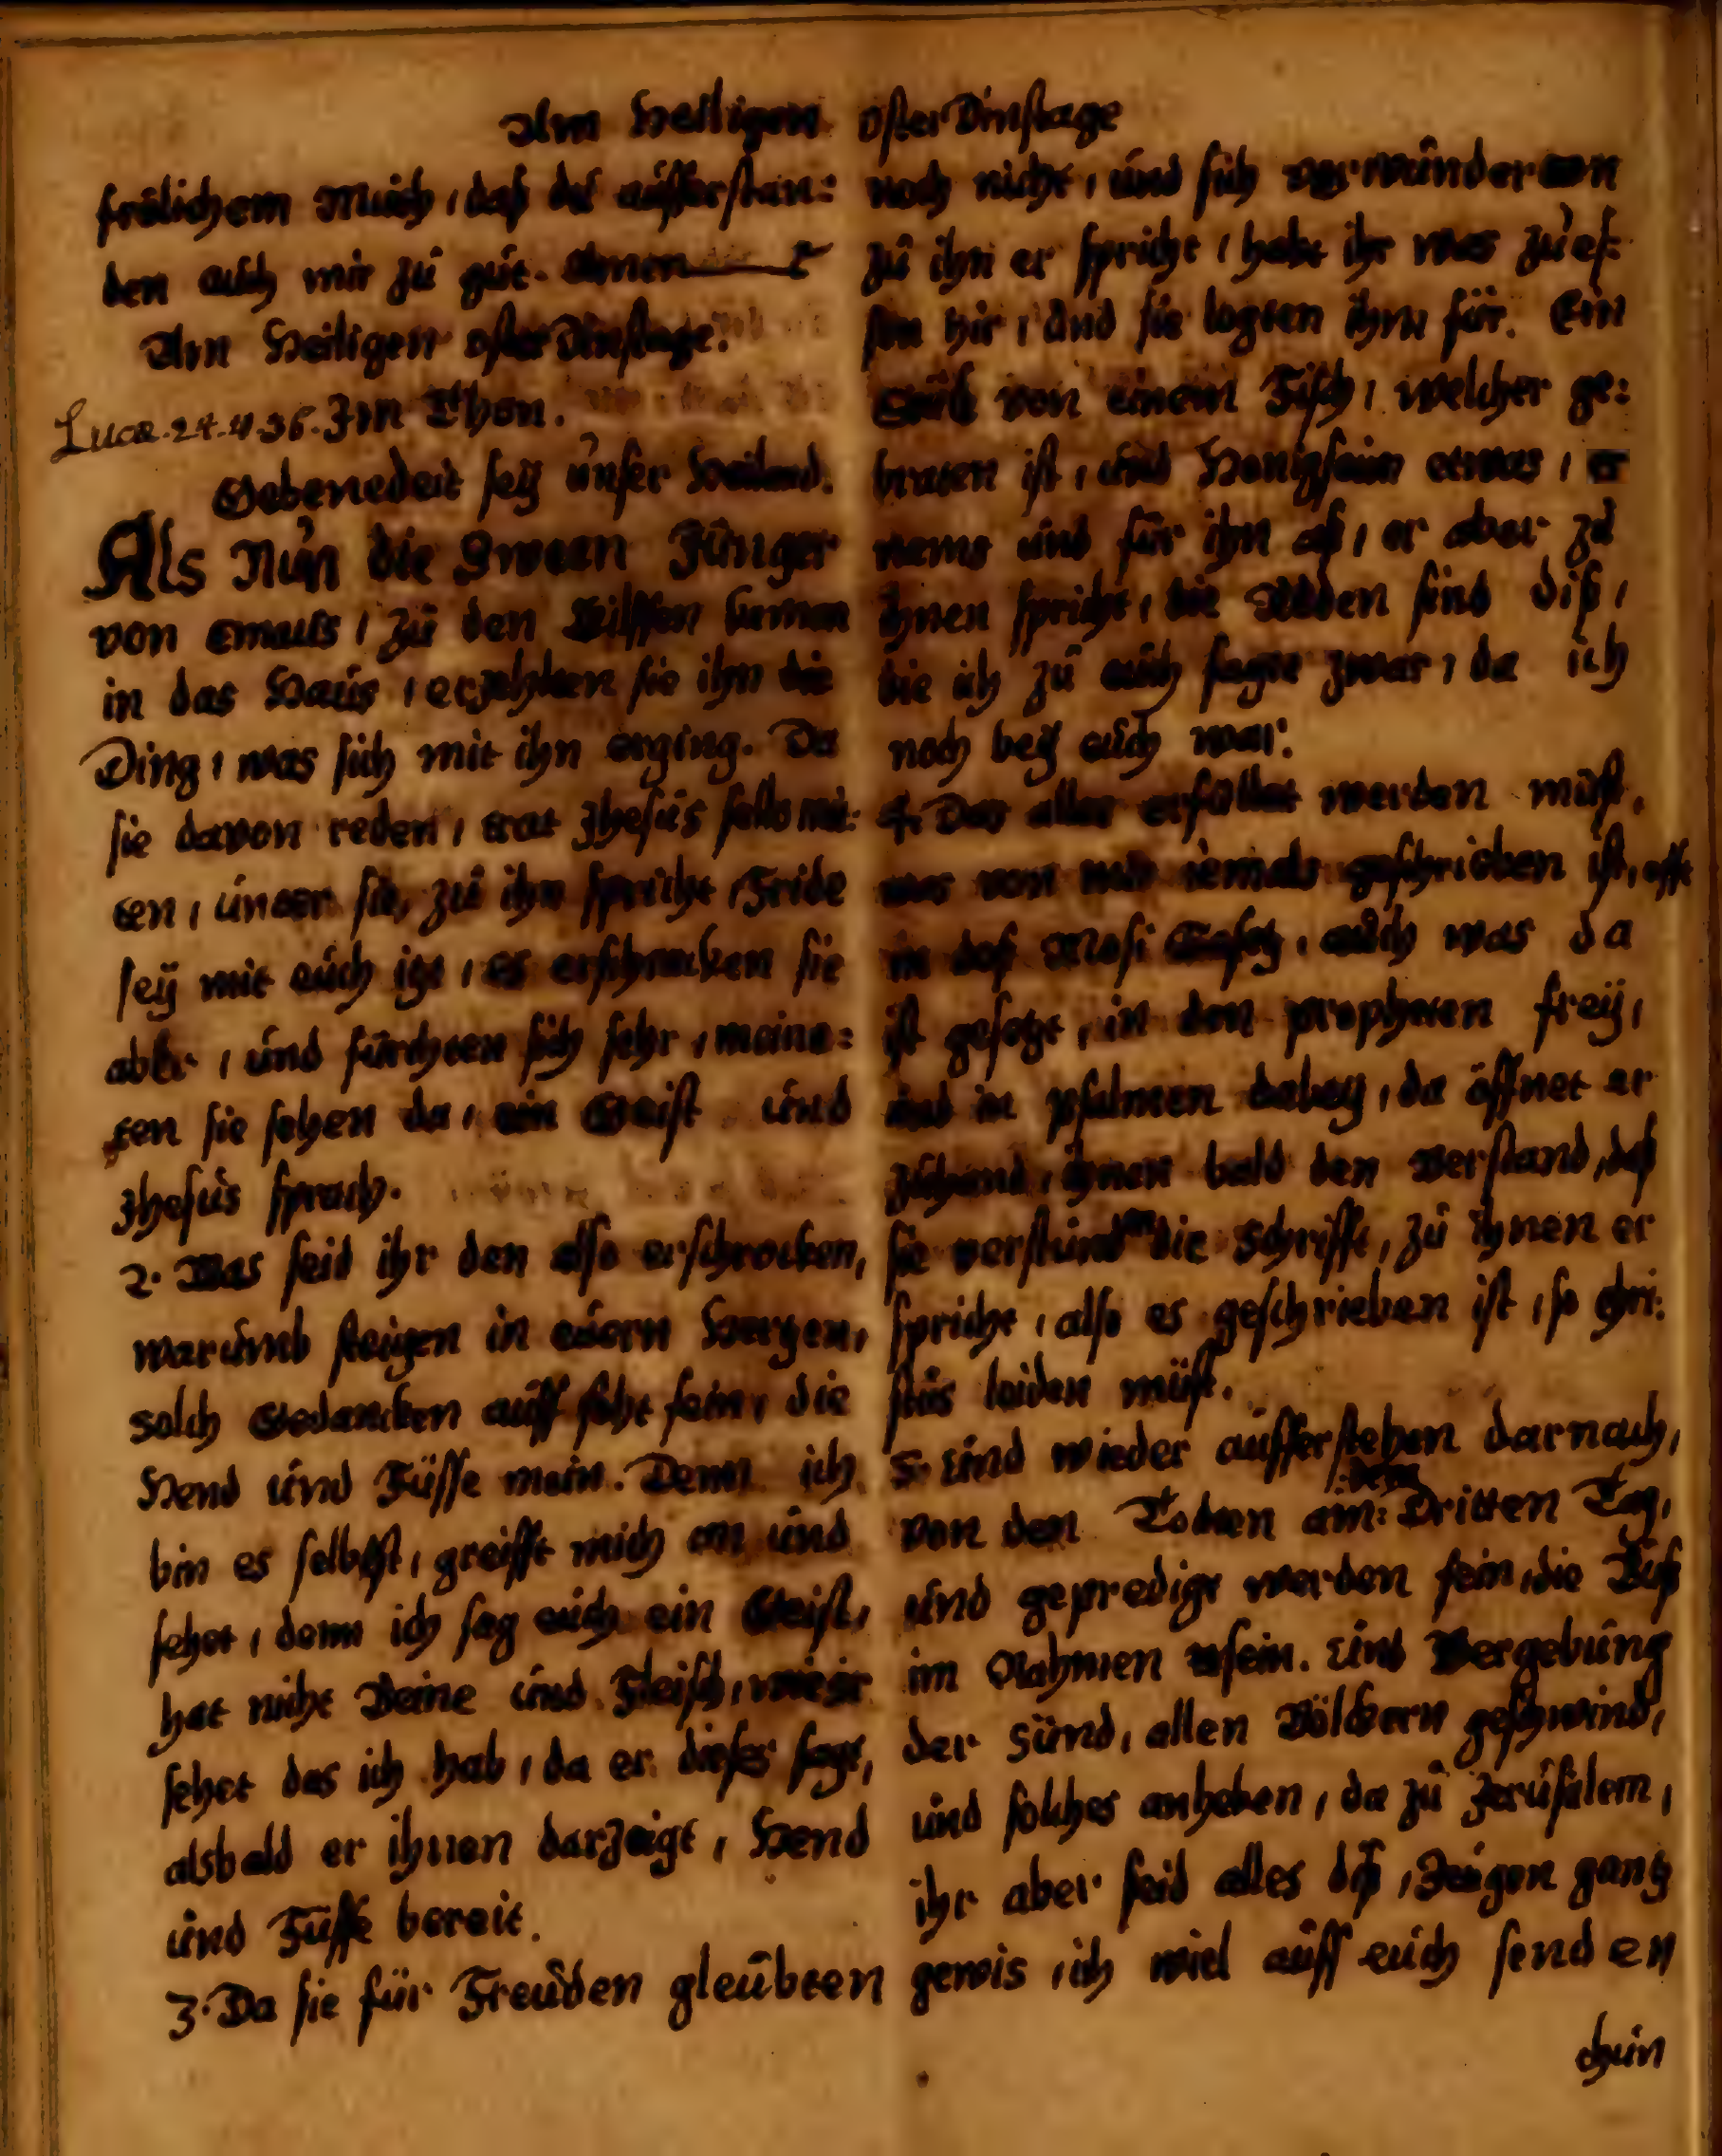 Am Heiligen osterDinstage
frölichem Muth, daß du aufferstan=
den auch mir zu gut. Amen
Am Heiligen osterDinstage.
Luca. 24. v. 36. Im Thon.
Gebenedeit seÿ unser Heiland.
Als Nun die Zween Jünger
von Emaus, zu den Eilffen kamen
in das Haus, erzehlten sie ihn die
Ding, was sich mit ihn erging. Da
sie davon reden, trat Jhesus selbs mit=
ten, unter sie, zu ihn spricht, Fride
seÿ mit euch itzt, es erschracken sie
aber, und fürchten sich sehr, meine=
ten sie sehen da, ein Geist und
Jhesus sprach.
2. Was seid ihr den also erschrocken,
warumb steigen in euern Hertzen,
solch Gedancken auff seht fein, die
Hend und Füsse mein. Denn ich
bin es selbst, greifft mich an und
sehet, denn ich sag euch ein Geist,
hat nicht Beine und Fleisch, wie ir
sehet das ich hab, da er dieses sagt,
alsbald er ihnen darzeigt, Hend
und Füsse bereit.
3. Da sie für Freuden gleubten
noch nicht, und sich verwunderten
zu ihn er spricht, habt ihr was zu es=
sen hir, und sie legten ihm für. Ein
Stück von einem Fisch, welcher ge=
braten ist, und Honigseim etwas, er
nams und für ihn aß, er aber zu
ihnen spricht, die Reden sind diß,
die ich zu euch sagte zwar, da ich
noch beÿ euch war.
4. Das alles erfüllet werden must,
was von mir iemals geschrieben ist,
in deß Mosi Gesetz, auch was da
ist gesetzt, in den propheten freÿ,
und in psalmen dabeÿ, da öffnet er
zuhand, ihnen bald den verstand, daß
sie verstunden die Schrifft, zu ihnen er
spricht, also es geschrieben ist, so Chri=
stus leiden müst.
5. Und wieder aufferstehen darnach,
von den Todten am: dem Dritten Tag,
und geprediget werden fein, die Buß
im Nahmen sein. Und Vergebung
der Sünd, allen Völckern geschwind,
und solches anheben, da zu Jerusalem,
ihr aber seid alles diß, Zeugen gantz
gewis, ich wiel auff euch senden
thun